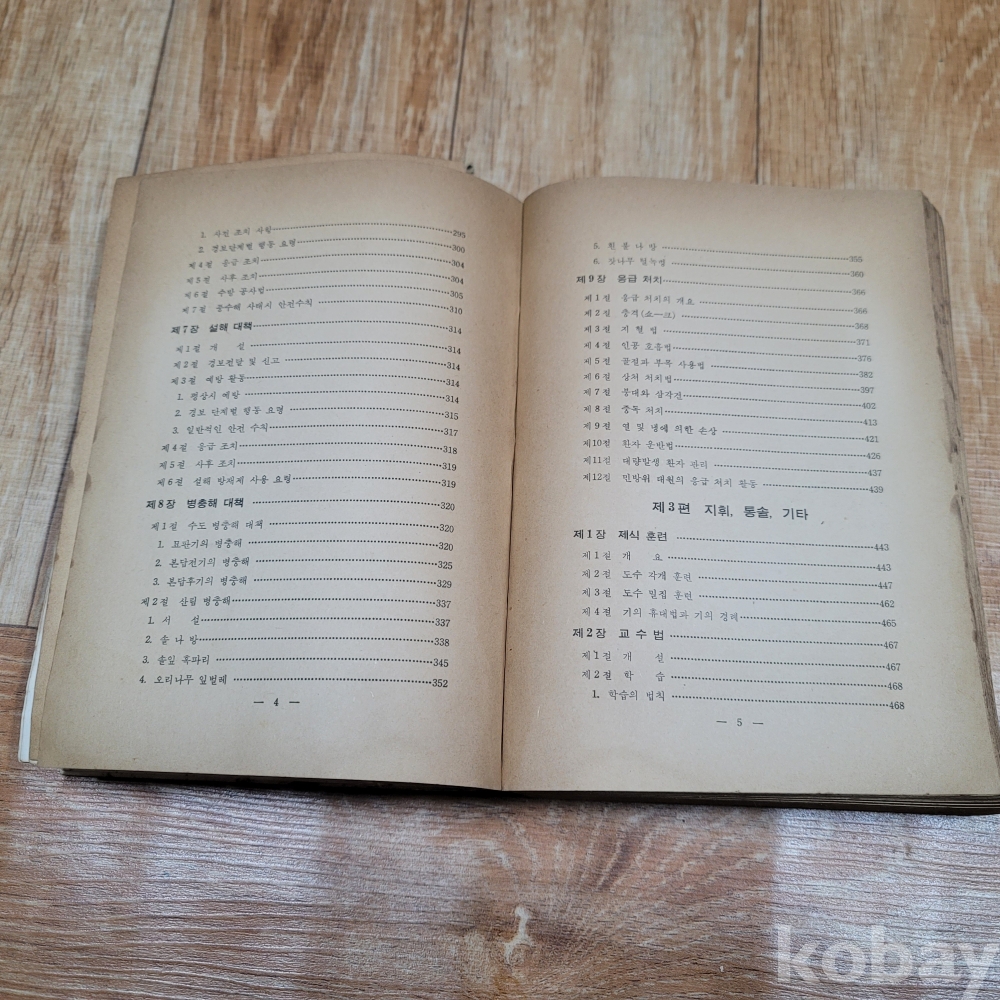 1. 사전 조치 사항 295
2. 경보단계별 행동 요령 300
제4절 응급 조치 304
제5절 사후 조치 304
제6절 수방 공사법 305
제7절 풍수해 사태시 안전수칙 310
제7장 설해 대책 314
제1절 개 설 314
제2절 경보전달 및 신고 314
제3절 예방 활동 314
1. 평상시 예방 314
2. 경보 단계별 행동 요령 315
3. 일반적인 안전 수칙 317
제4절 응급 조치 318
제5절 사후 조치 319
제6절 설해 방재제 사용 요령 319
제8장 병충해 대책 320
제1절 수도 병충해 대책 320
1. 묘판기의 병충해 320
2. 본답전기의 병충해 325
3. 본답후기의 병충해 329
제2절 산림 병충해 337
1. 서 설 337
2. 솔나방 338
3. 솔잎 혹파리 345
4. 오리나무 잎벌레 352
— 4 —
5. 흰불나방 355
6. 잣나무 털녹병 360
제9장 응급 처치 366
제1절 응급 처치의 개요 366
제2절 충격(쇼—크) 368
제3절 지혈법 371
제4절 인공 호흡법 376
제5절 골절과 부목 사용법 382
제6절 상처 처치법 397
제7절 붕대와 삼각건 402
제8절 중독 처치 413
제9절 열 및 냉에 의한 손상 421
제10절 환자 운반법 426
제11절 대량발생 환자 관리 437
제12절 민방위 대원의 응급 처치 활동 439
제3편 지휘, 통솔, 기타
제1장 제식 훈련 443
제1절 개 요 443
제2절 도수 각개 훈련 447
제3절 도수 밀집 훈련 462
제4절 기의 휴대법과 기의 경례 465
제2장 교수법 467
제1절 개 설 467
제2절 학 습 468
1. 학습의 법칙 468
— 5 —
kobay